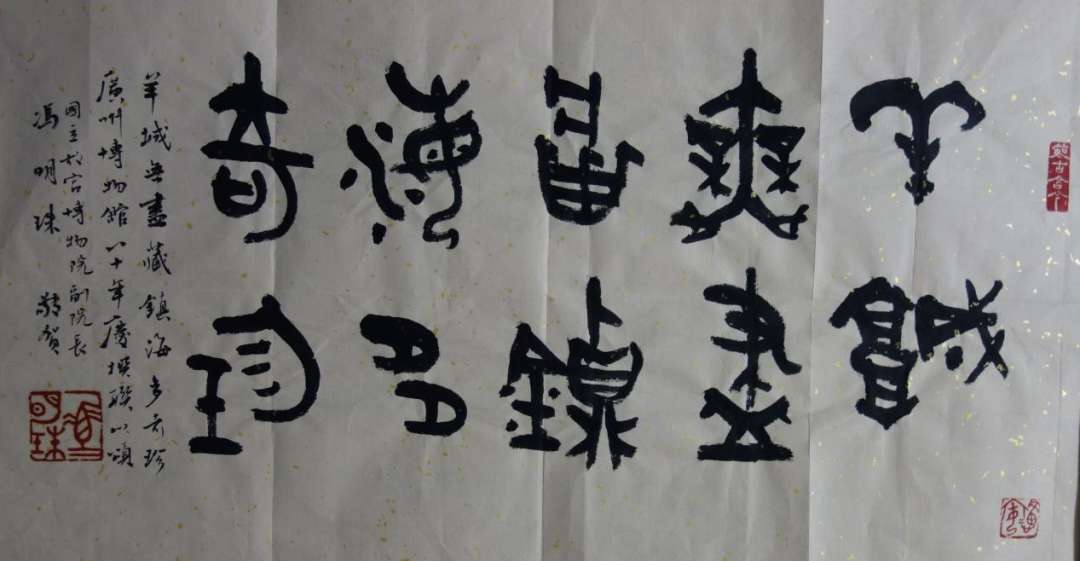 羊城
無盡
藏鎮
海多
奇珍
羊城無盡藏鎮海多奇珍
廣州博物館八十年慶撰聯以頌
國立故宮博物院副院長
馮明珠 敬賀
馮明珠